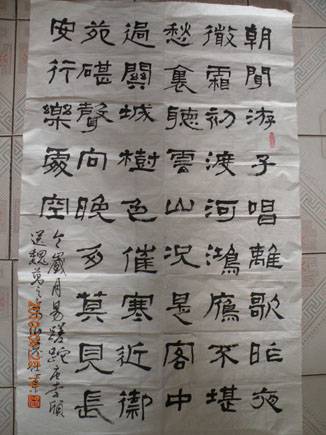 朝聞游子唱離歌昨夜
微霜初渡河鴻鴈不堪
愁裏聽雲山況是客中
過關城樹色催寒近御
苑碪聲向晚多莫見長
安行樂處空
令歲月易蹉跎唐李頎
送魏萬之